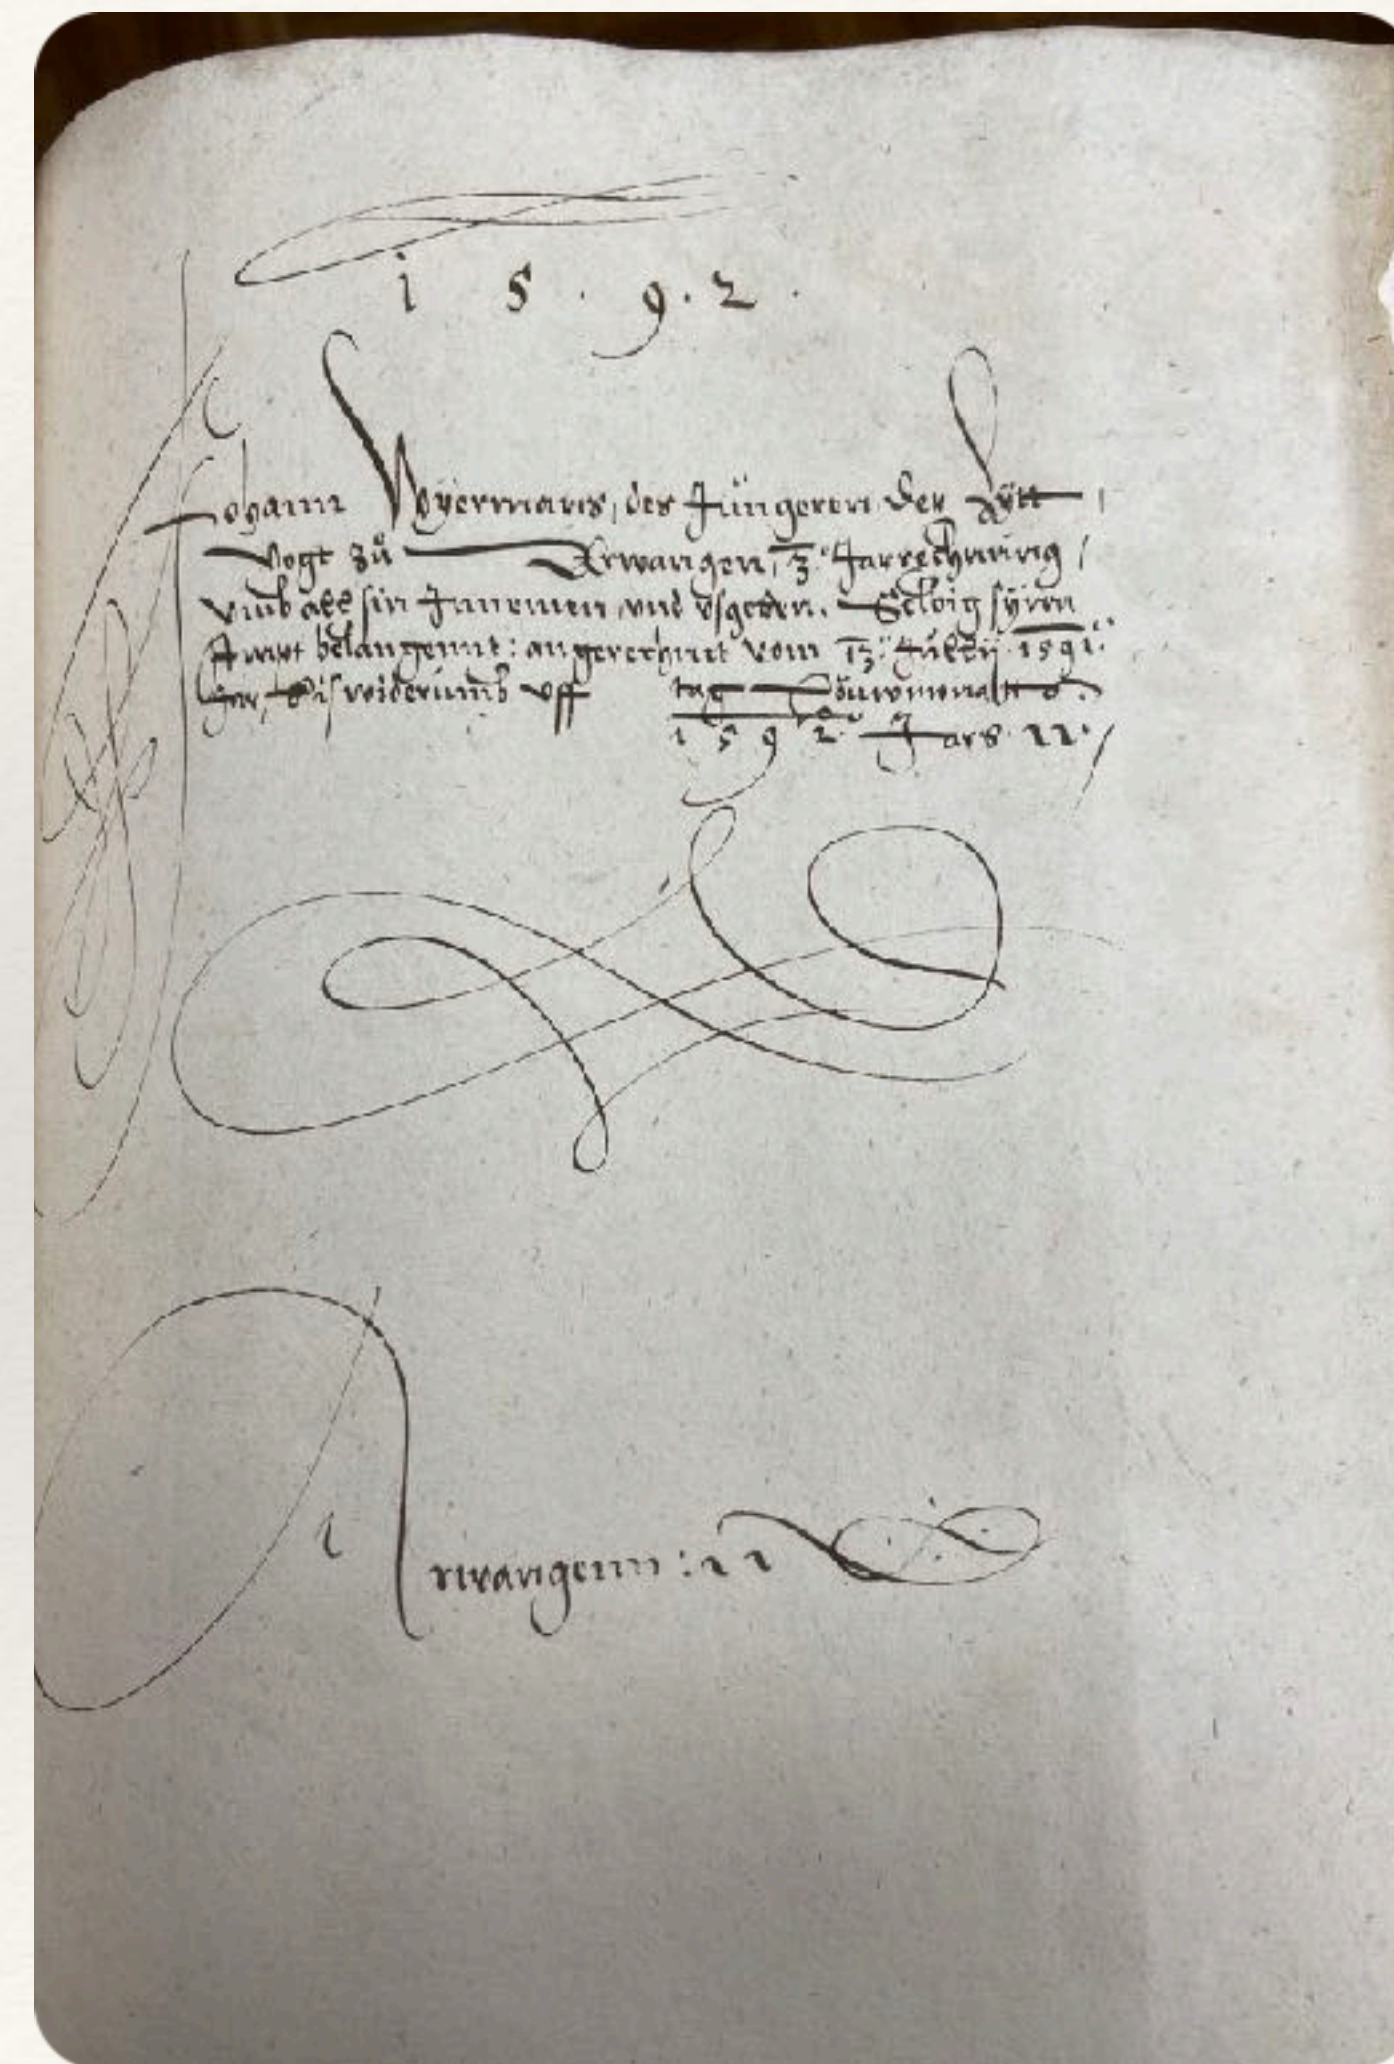 1 5 . 9 . 2 .
Johann Weyermans, des Jüngeren, der Zytt
Vogt zů Arwangen, 3. Jarrechnung,
vmb all sin Innemen, vnd vsgeben. Selbig synn
Ampt belangennt: angerechnet vom 13. Julÿ 1591.
Jar, bis widerumb vff tag Höuwmonatts.
1 5 9 2. Jars
Arwangenn: